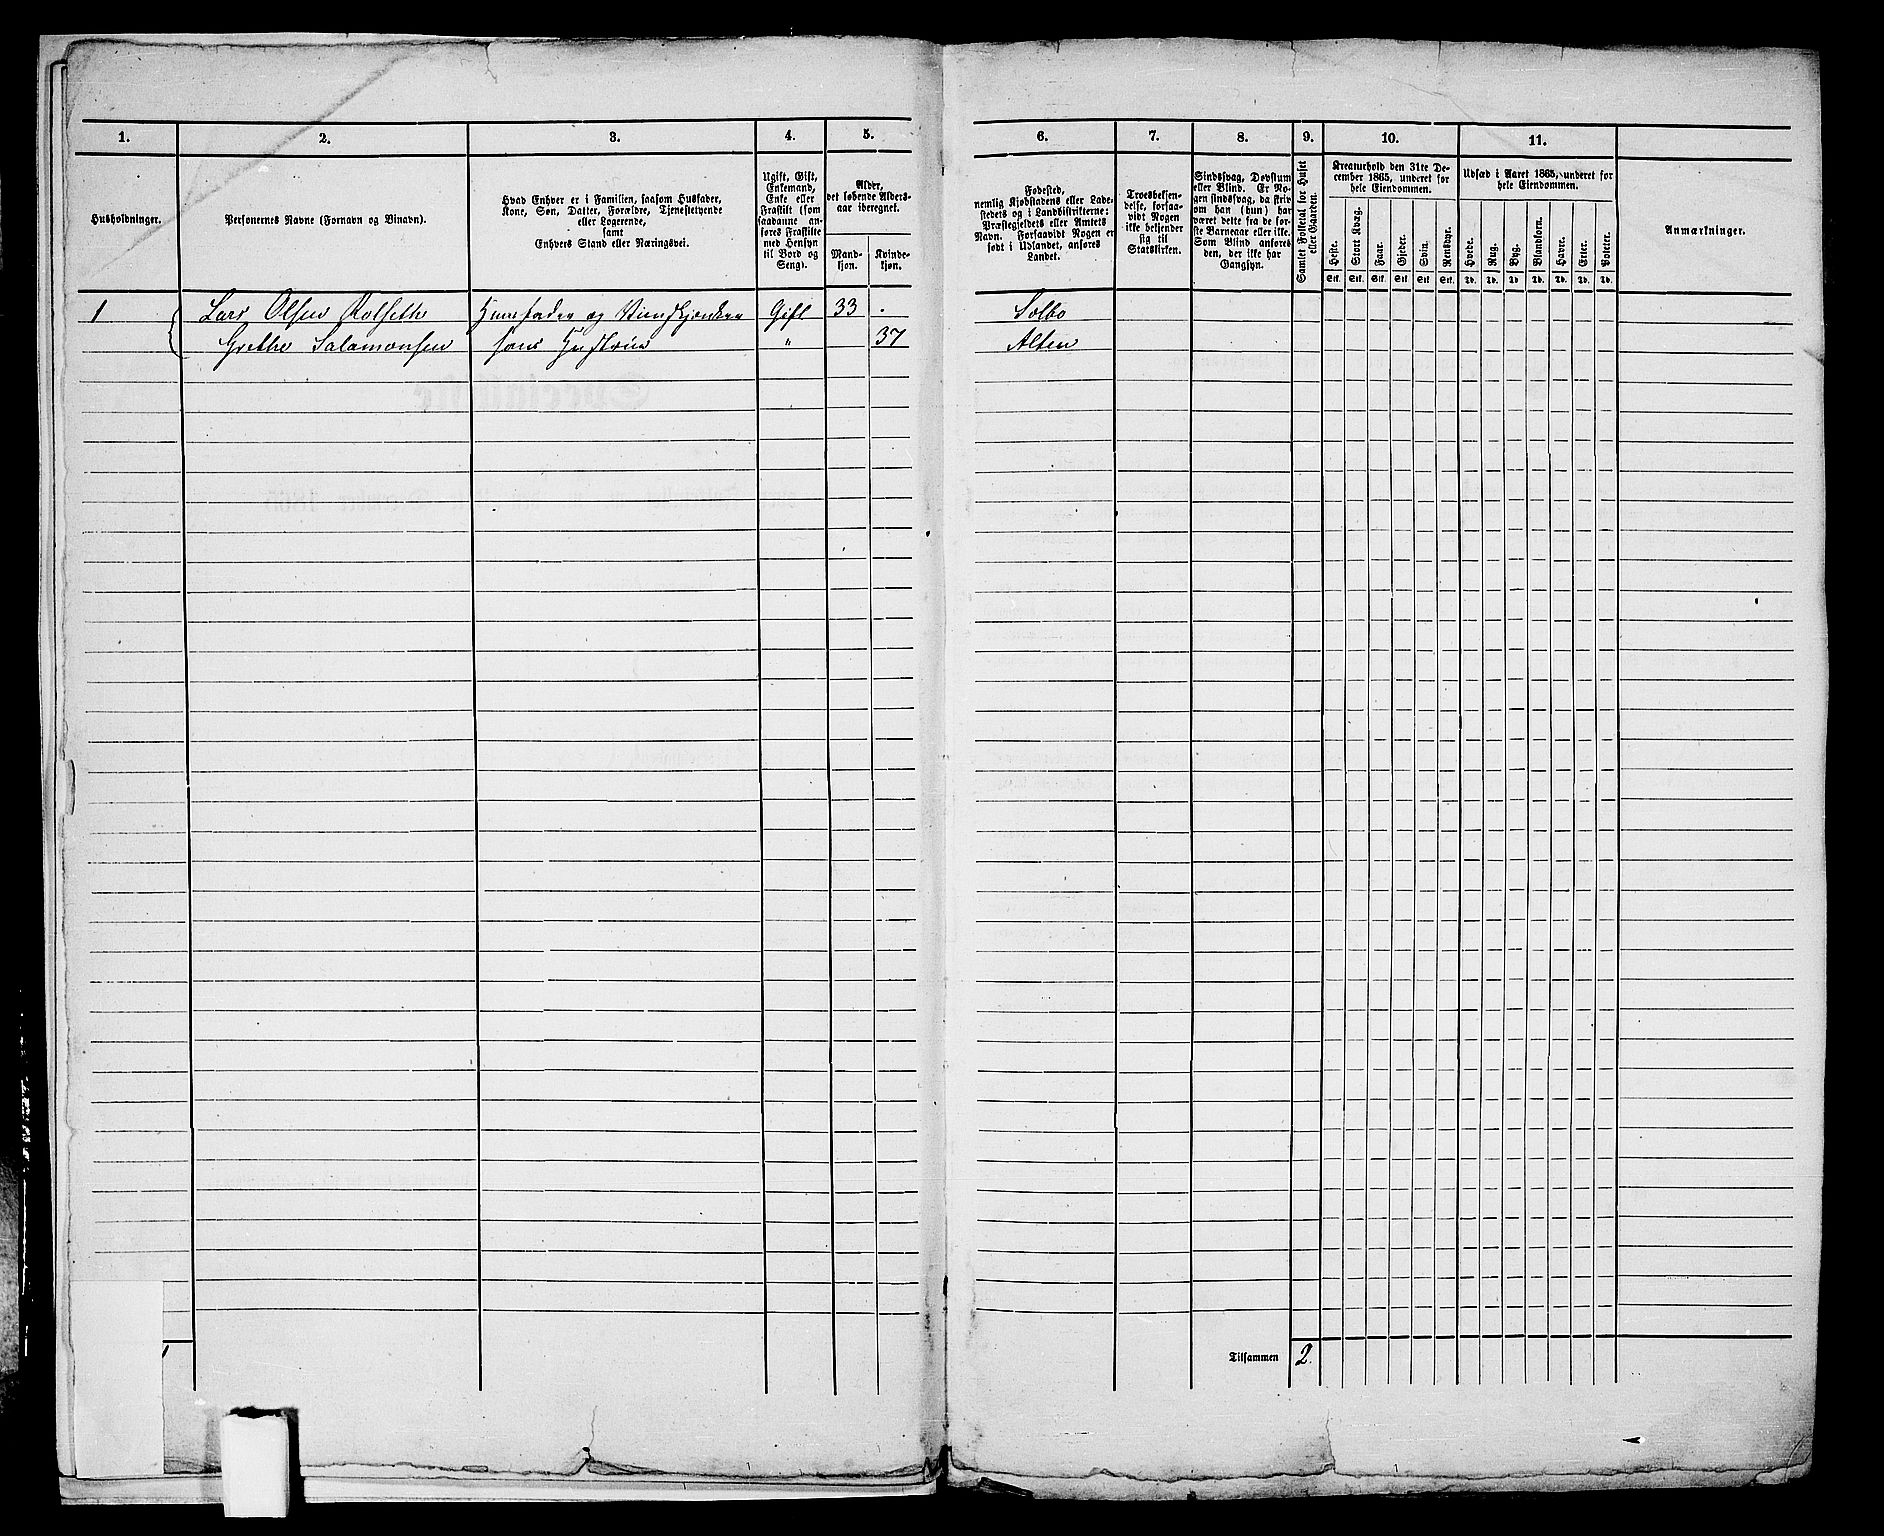 1.
2.
3.
4.
5.
Husholdninger.
Personernes Navne (Fornavn og Binavn).
Hvad Enhver er i Familien, saasom Husfader,
Kone, Søn, Datter, Forældre, Tjenestetyende
eller Logerende,
samt
Enhvers Stand eller Næringsvei.
Ugift, Gift,
Enkemand,
Enke eller
Fraskilt (som
saadanne an-
føres Fraskilte
med Hensyn
til Bord og
Seng).
Alder,
det løbende Alders-
aar iberegnet.
Mand-
kjøn.
Kvinde-
kjøn.
1 Lars Olsen Rolseth Huusfader og Gift 33
Grethe Salamonsen hans Hustrue " 37
6.
7.
8.
9.
10.
11.
Fødested,
nemlig Kjøbstadens eller Lade-
stedets og i Landdistrikterne:
Præstegjeldets eller Amtets
Navn. Forsaavidt Nogen er
født i Udlandet, anføres
Landet.
Troesbekjen-
delse, forsaa-
vidt Nogen
ikke bekjender
sig til
Statskirken.
Sindssvag, Døvstum
eller Blind. Er No-
gen sindssvag, da skriv
om han (hun) har
været dette fra de før-
ste Barneaar eller ik-
ke. Som Blind anføres
den, der ikke har
Gangsyn.
Samlet Folketal for Huset
eller Gaarden.
Kreaturhold den 31te De-
cember 1865, underet for
hele Eiendommen.
Heste.
Stort Kvæg.
Faar.
Gjeder.
Svin.
Rensdyr.
Stk. Stk. Stk. Stk. Stk. Stk.
Udsæd i Aaret 1865, underet for
hele Eiendommen.
Hvede.
Rug.
Byg.
Blandkorn.
Havre.
Erter.
Poteter.
Td. Td. Td. Td. Td. Td. Td.
Anmærkninger.
Alten
Tilsammen 2.